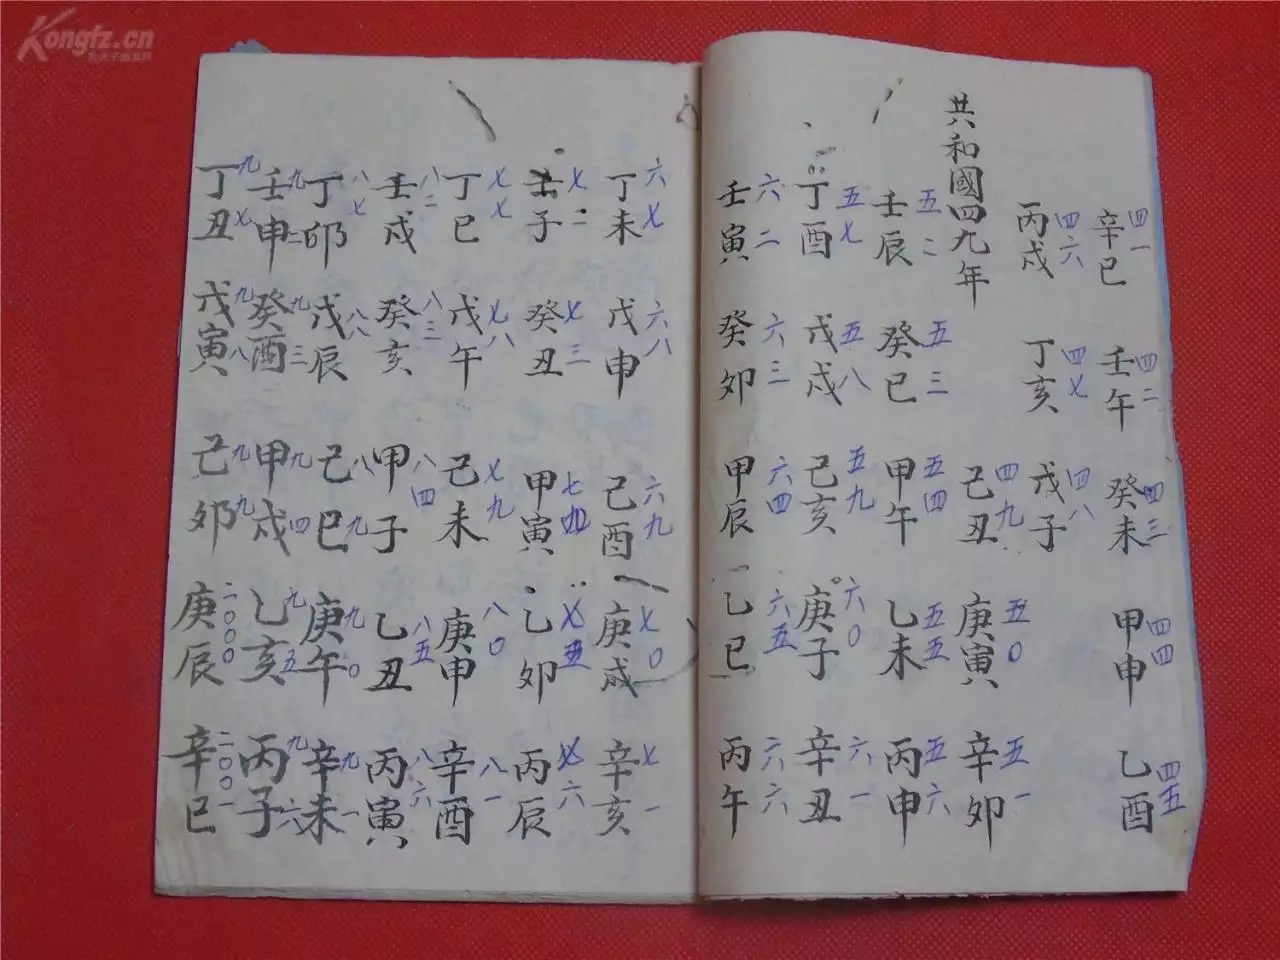 Kongfz.cn
辛巳 四一
壬午 四二
癸未 四三
甲申 四四
乙酉 四五
丙戌 四六
丁亥 四七
戊子 四八
共和國四九年
己丑 四九
庚寅 五0
辛卯 五一
壬辰 五二
癸巳 五三
甲午 五四
乙未 五五
丙申 五六
丁酉 五七
戊戌 五八
己亥 五九
庚子 六0
辛丑 六一
壬寅 六二
癸卯 六三
甲辰 六四
乙巳 六五
丙午 六六
丁未 六七
戊申 六八
己酉 六九
庚戌 七0
辛亥 七一
壬子 七二
癸丑 七三
甲寅 七四
乙卯 七五
丙辰 七六
丁巳 七七
戊午 七八
己未 七九
庚申 八0
辛酉 八一
壬戌 八二
癸亥 八三
甲子 八四
乙丑 八五
丙寅 八六
丁卯 八七
戊辰 八八
己巳 八九
庚午 九0
辛未 九一
壬申 九二
癸酉 九三
甲戌 九四
乙亥 九五
丙子 九六
丁丑 九七
戊寅 九八
己卯 九九
庚辰 二000
辛巳 二00一